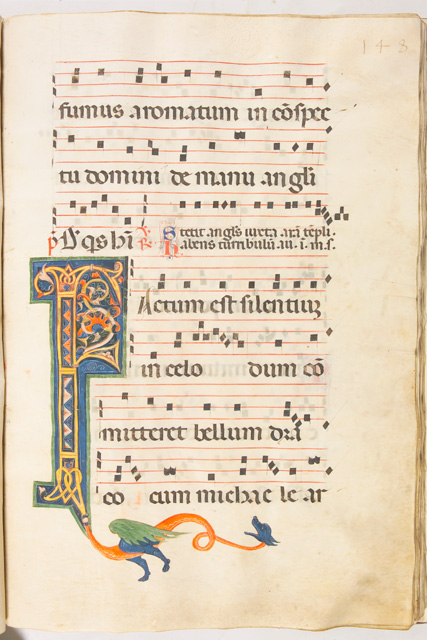 148
fumus aromatum in cōspec
tu domini de manu angli
p̄ D̄s q̄s hi V̄ Stetit angłs iuxta arā tēpli.
R̄ Habens turribulū au. i. m. s.
Factum est silentiuʒ
in celo dum cō
mitteret bellum dra
co cum michae le ar